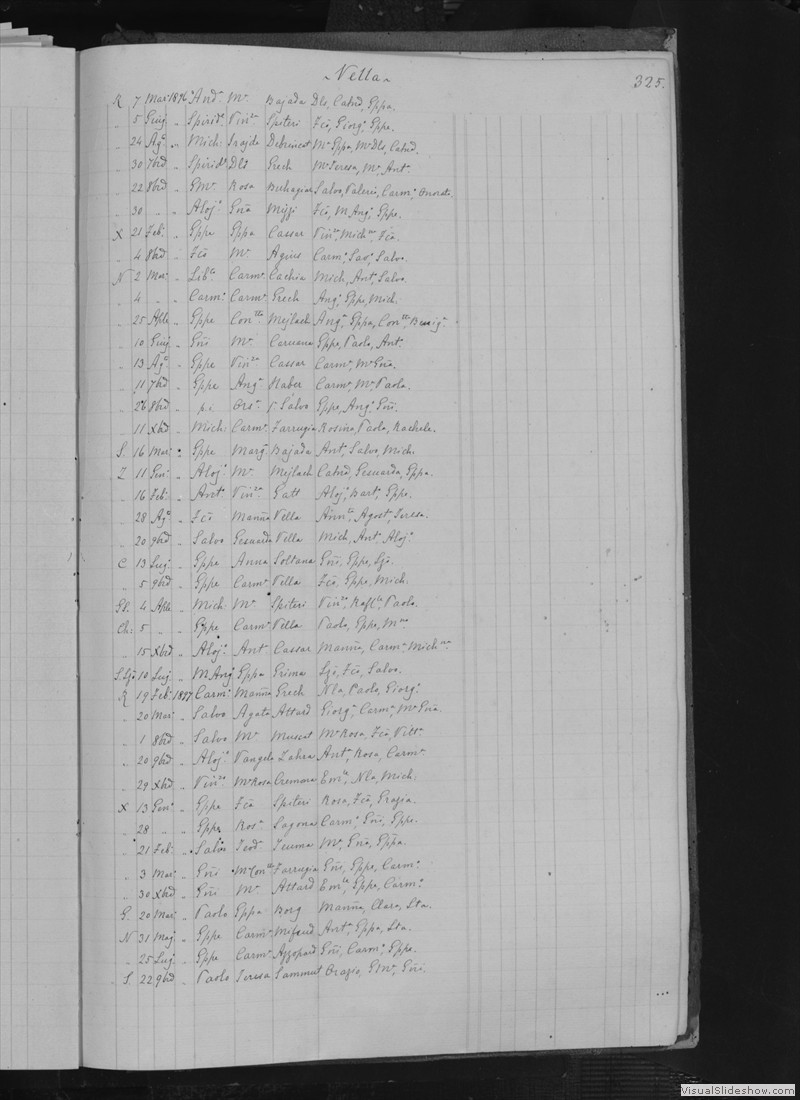 Vella
325.
R 7 Mar: 1896 And.a M.a Bajada Dls, Catnd, Gppa.
" 5 Giug " Spirid. Vin.za Spiteri Fco, Giorg.o Gppe.
" 24 Ag.o " Mich: Debrincat M.a Gppa, M.a Dls, Catnd.
" 30 7brd " Spirid. Dls Grech M.a Teresa, M.a Ant.
" 22 8brd " GM.a Rosa Buhagiar Salvo, Valerio, Carm.o Onorato.
" 30 " " Aloj.o Gña Mizzi Fco, M Ang.o, Gppe.
X 21 Feb: " Gppe Gppa Cassar Vin.zo, Mich.na, Fca.
" 4 8brd " Fco M.a Agius Carm.o Sav.o Salvo.
N 2 Mar: " Carm.a Cachia Mich, Ant, Salvo.
" 4 " " Carm.o Carm.a Grech Ang.o, Gppe, Mich:
" 25 Aple " Gppe Con.tta Mejlach Ang.a, Gppa, Con.tta, Benig.o
" 10 Giug " Gñi M.a Caruana Gppa, Paolo, Ant.
" 13 Ag.o " Gppe Vin.za Cassar Carm.a M.a Gña.
" 11 7brd " Gppe Ang.a Naber Carm.o M.a Paola.
" 26 8brd " p.i. Ors.a P. Salvo Gppe, Ang.o Gñi.
" 11 Xbrd " Mich: Carm.a Farrugia Rosina, Paola, Rachele.
S. 16 Mar: " Gppe Marg. Bajada Ant, Salvo, Mich.
Z 11 Gen: " Aloj.o M.a Mejlach Catnd, Gesuarda, Gppa.
" 16 Feb: " Ant. Vin.za Gatt Aloj.o Bart.o, Gppe.
" 28 Ag.o " Fco Manña Vella Agost, Teresa.
" 20 9brd " Salvo Gesuarda Vella Mich, Ant, Aloj.o
C 13 Lug: " Gppe Anna Soltana Gñi, Gppe, Lja.
" 5 9brd " Gppe Carm.a Vella Fco, Gppe, Mich.
Gh. 4 Aple " Mich: M.a Spiteri Vin.zo, Rafl.la, Paolo.
Ch: 5 " " Gppe Carm.a Vella Paolo, Gppe, M.na
" 15 Xbrd " Aloj.o Ant Cassar Manña, Carm.a Mich.na
S.Ljo 10 Lug " M Ang. Gppa Grima Ljo, Fco, Salvo.
R 19 Feb: 1897 Carm.o Manña Grech Nla, Paolo, Giorg.o
" 20 Mar: " Salvo Agata Attard Giorg.o, Carm.o, M.a Gña.
" 1 8brd " Salvo M.a Muscat M.a Rosa, Fca, Vitt.a
" 20 9brd " Aloj.o Vangela Zahra Ant, Rosa, Carm.a
" 29 Xbrd " Vin.zo M.a Rosa Cremona Em.le, Nla, Mich:
X 13 Gen.o " Gppe Fca Spiteri Rosa, Fca, Grazia.
" 28 " " Gppe Ros.a Sagona Carm.o Gñi, Gppe.
" 21 Feb: " Salvo Teod. Teuma M.a, Gña, Gppa.
" 3 Mar: " Gñi M.a Con.tta Farrugia Gñi, Gppe, Carm.o
" 30 Xbrd " Gñi M.a Attard Em.le, Gppe, Carm.o
G. 20 Mar: " Paolo Gppa Borg Manña, Clara, Lta.
N 31 Mag: " Gppe Carm.a Mifsud Ant, Gppa, Lta.
" 25 Lug: " Gppe Carm.a Azzopard Gñi, Carm.o, Gppe.
S. 22 9brd " Paolo Teresa Sammut Orazio, GM.a, Gñi.
...
VisualSlideshow.com